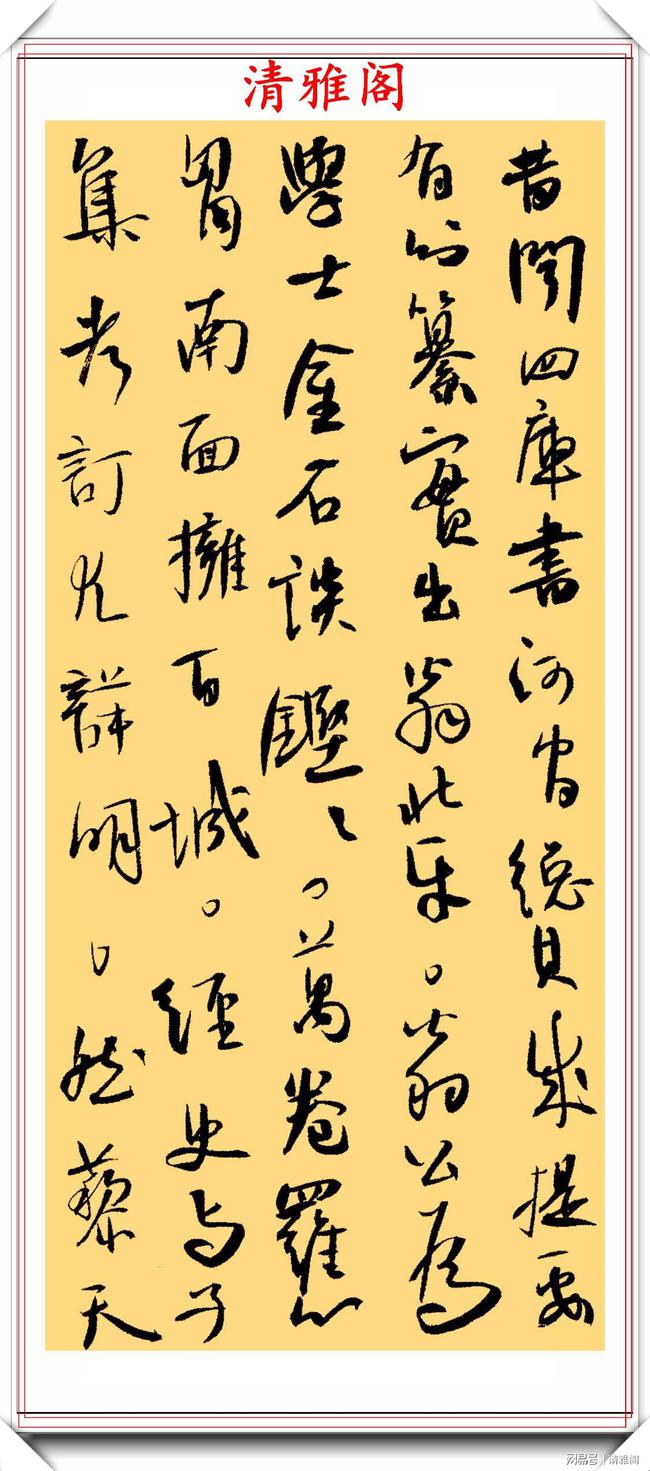 清雅阁
昔聞四庫書河間總其成提要
有分纂實出翁北平。翁公為
學士金石談鏗々。萬卷羅心
胷南面擁百城。經史与子
集考訂尤詳明。然藜天
网易号 | 清雅阁